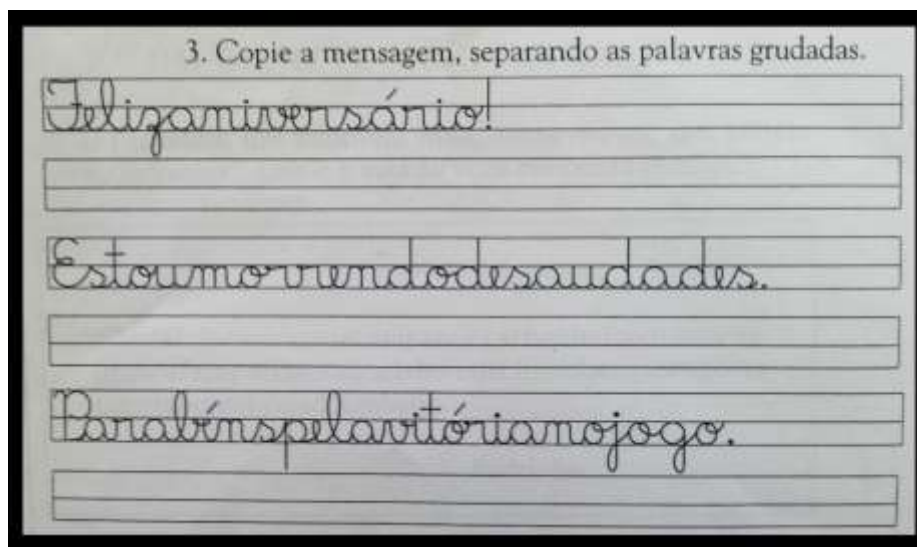 3. Copie a mensagem, separando as palavras grudadas.
Felizaniversário!
Estoumorrendodesaudades.
Parabénspelavitórianojogo.